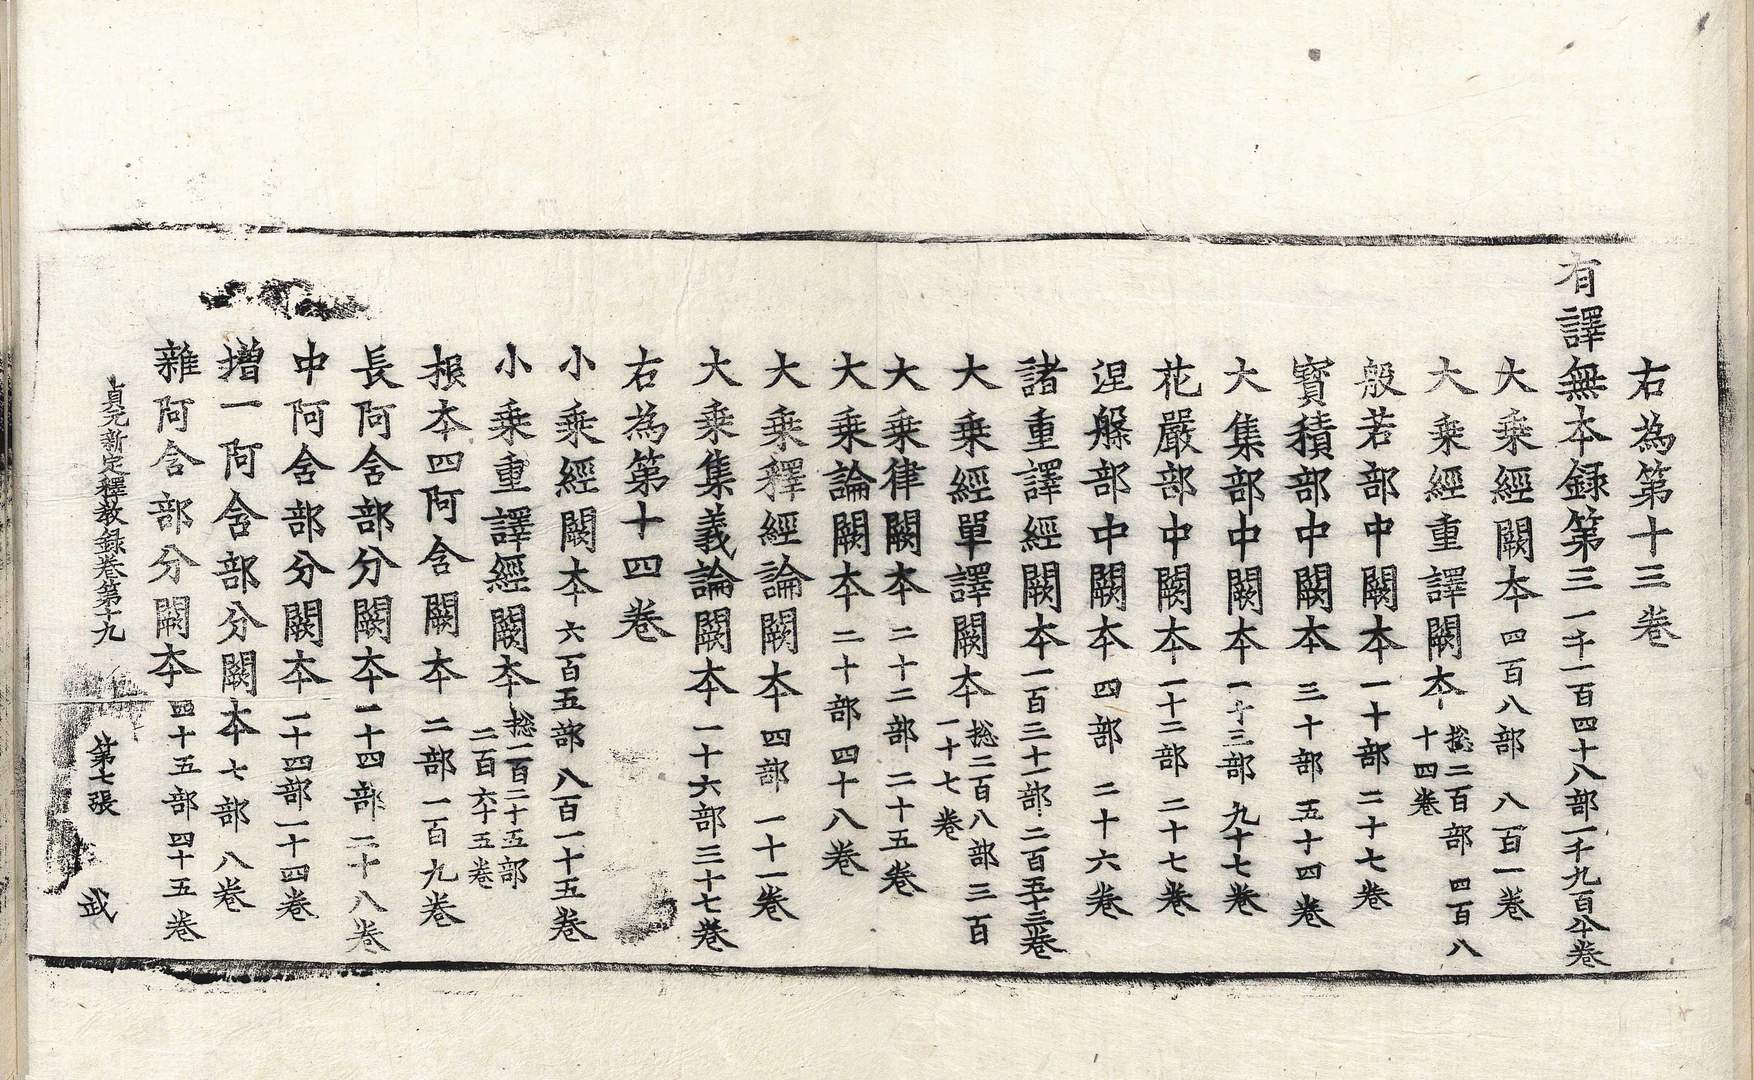 右為第十三卷
有譯無本録第三一千一百四十八部一千九百八十卷
大乗經闕本四百八部八百一卷
大乗經重譯闕本揔二百部四百八十四卷
般若部中闕本一十部二十七卷
寳積部中闕本三十部五十四卷
大集部中闕本一十三部九十七卷
花嚴部中闕本一十三部二十七卷
涅槃部中闕本四部二十六卷
諸重譯經闕本一百三十一部二百五十三卷
大乗經單譯闕本揔二百八部三百一十七卷
大乗律闕本二十二部二十五卷
大乗論闕本二十部四十八卷
大乗釋經論闕本四部一十一卷
大乗集義論闕本一十六部三十七卷
右為第十四卷
小乗經闕本六百五部八百一十五卷
小乗重譯經闕本揔一百二十五部二百六十五卷
根本四阿含闕本二部一百九卷
長阿含部分闕本一十四部二十八卷
中阿含部分闕本一十四部一十四卷
增一阿含部分闕本七部八卷
雜阿含部分闕本四十五部四十五卷
貞元新定釋教錄卷第十九 第七張 武